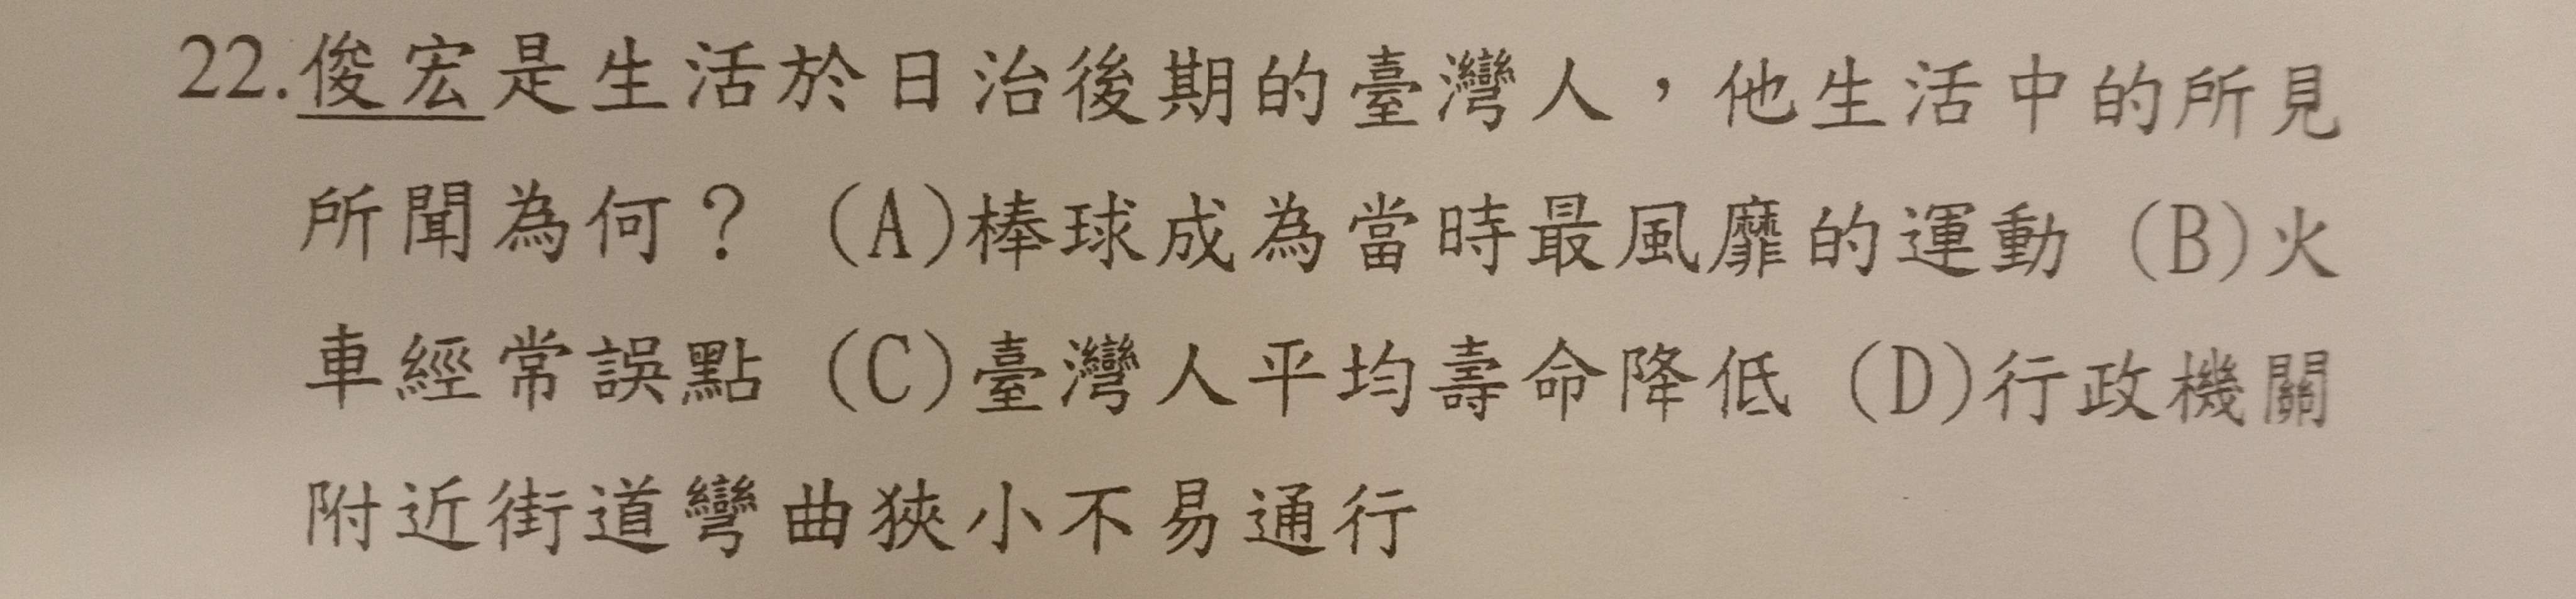 22.俊宏是生活於日治後期的臺灣人，他生活中的所見
所聞為何？ (A)棒球成為當時最風靡的運動 (B)火
車經常誤點 (C)臺灣人平均壽命降低 (D)行政機關
附近街道彎曲狹小不易通行